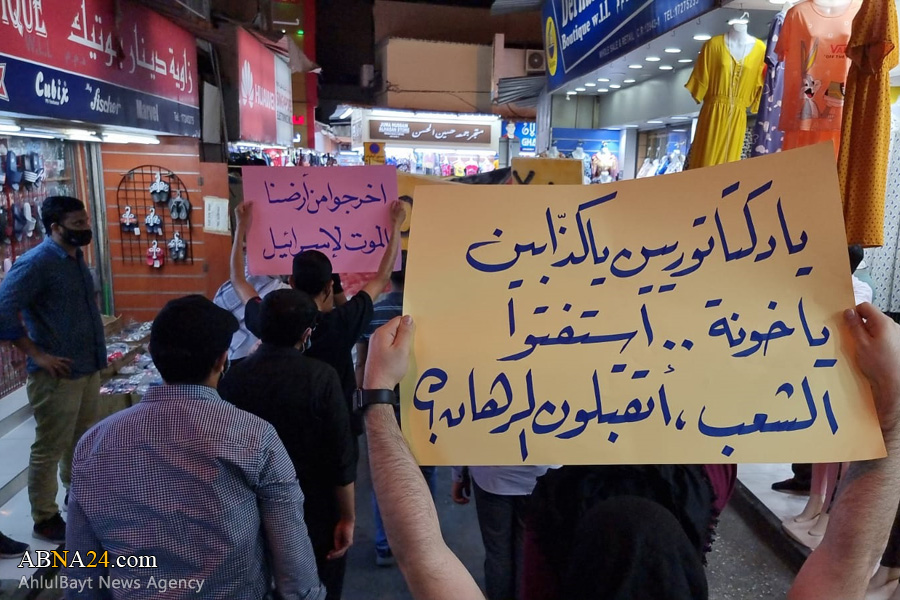 زاوية ديناربوتيك
Cubix
fischer
Marvel
HUAWEI
Boutique w.l.l.
اخرجوا من أرضنا
الموت لإسرائيل
يا دكتاتوريين يا كذّابين
يا خونة .. استفتوا
الشعب، أتقبلون الرهان؟!
ABNA24.com
AhlulBayt News Agency